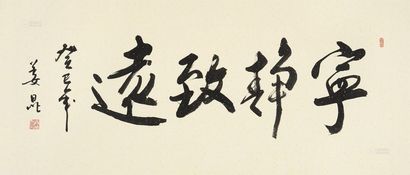 寧靜致遠
癸巳年
姜昆